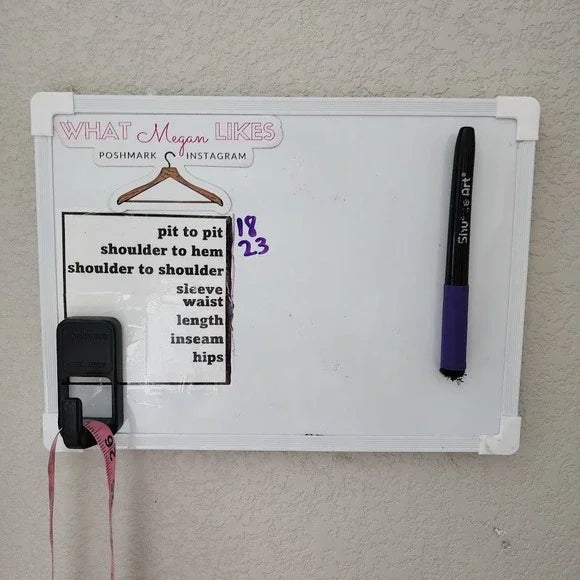 WHAT Megan LIKES
POSHMARK INSTAGRAM
pit to pit 18
shoulder to hem 23
shoulder to shoulder
sleeve
waist
length
inseam
hips